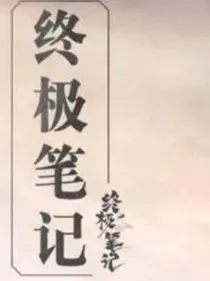 终极笔记
终极笔记